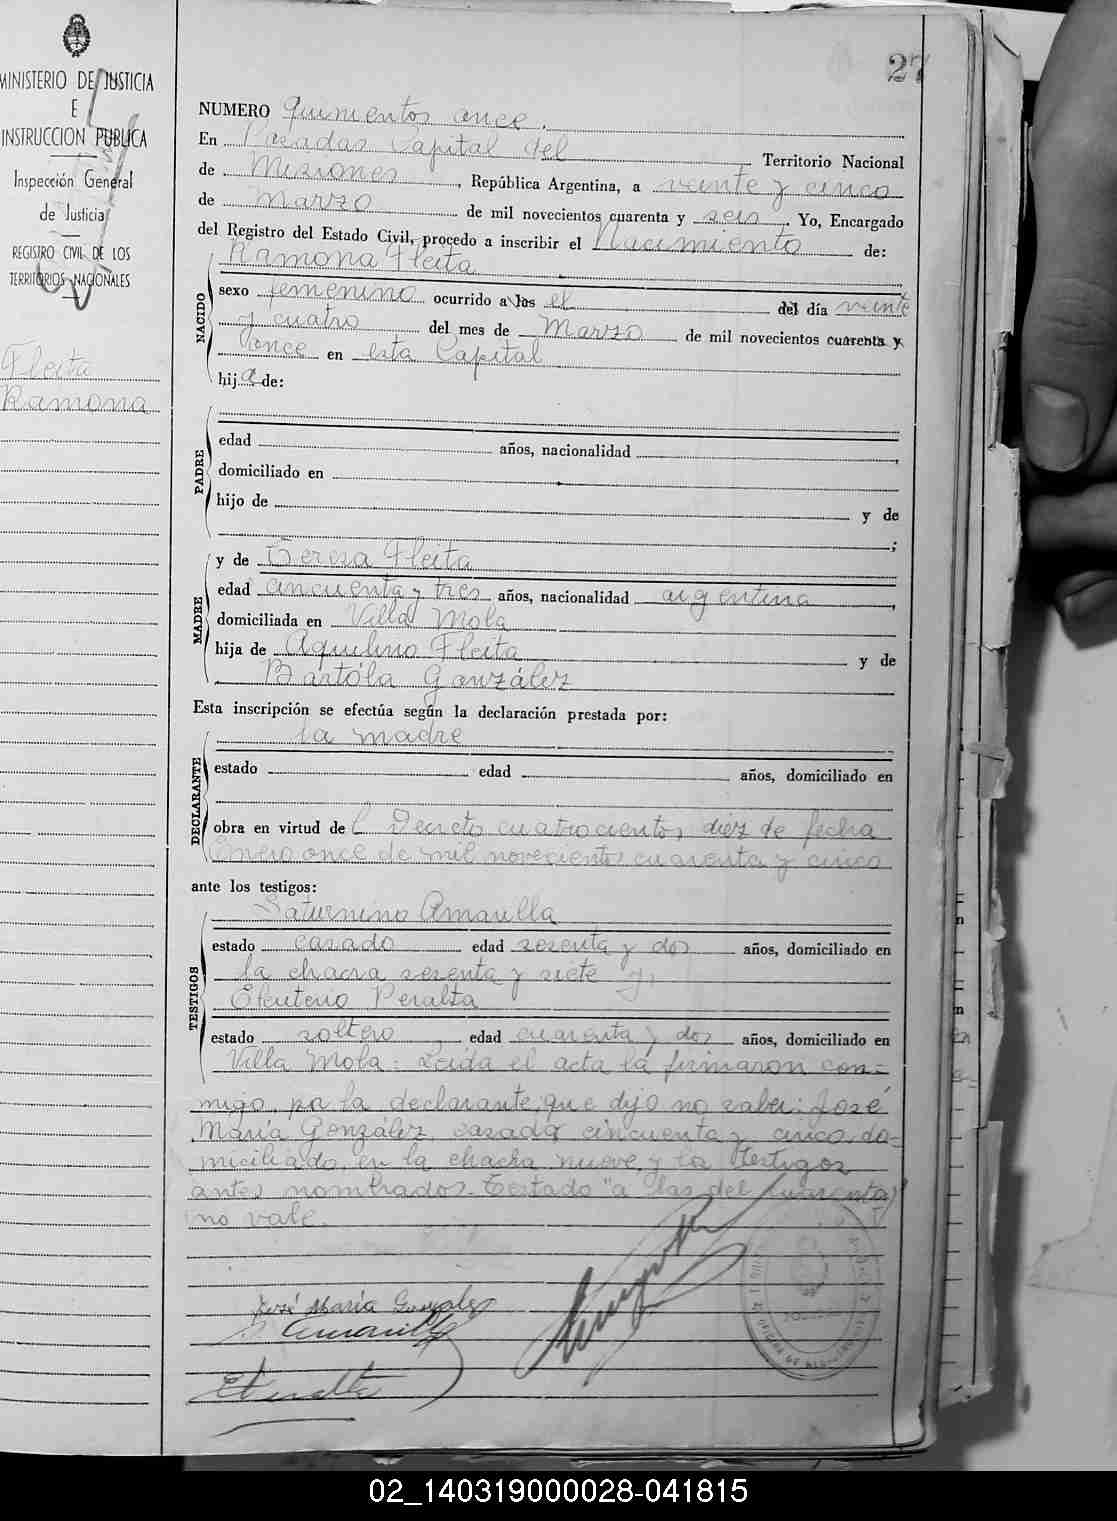 27
MINISTERIO DE JUSTICIA
E
INSTRUCCION PUBLICA
Inspección General
de Justicia
REGISTRO CIVIL DE LOS
TERRITORIOS NACIONALES
Fleita
Ramona
NUMERO Quinientos once.
En Posadas Capital del Territorio Nacional
de Misiones, República Argentina, a veinte y cinco
de Marzo de mil novecientos cuarenta y seis. Yo, Encargado
del Registro del Estado Civil, procedo a inscribir el Nacimiento de:
NACIDO
Ramona Fleita
sexo femenino ocurrido a las el del día veinte
y cuatro del mes de Marzo de mil novecientos cuarenta y
once en esta Capital
hija de:
PADRE
edad años, nacionalidad
domiciliado en
hijo de y de
;
MADRE
y de Teresa Fleita
edad cincuenta y tres años, nacionalidad argentina,
domiciliada en Villa Mola
hija de Aquilino Fleita y de
Bartóla González
Esta inscripción se efectúa según la declaración prestada por:
DECLARANTE
la madre
estado edad años, domiciliado en
obra en virtud del Decreto cuatrocientos diez de fecha
Enero once de mil novecientos cuarenta y cinco
ante los testigos:
TESTIGOS
Saturnino Amarilla
estado casado edad sesenta y dos años, domiciliado en
la chacra sesenta y siete y,
Eleuterio Peralta
estado soltero edad cuarenta y dos años, domiciliado en
Villa Mola: Leida el acta la firmaron con=
migo, por la declarante, que dijo no saber: José
María González, casado, cincuenta y cinco, do=
miciliado en la chacra nueve, y los testigos
antes nombrados. Testado "a las del cuarenta y"
no vale.
José María Gonzalez
S. Amarilla
E. Peralta
02_140319000028-041815